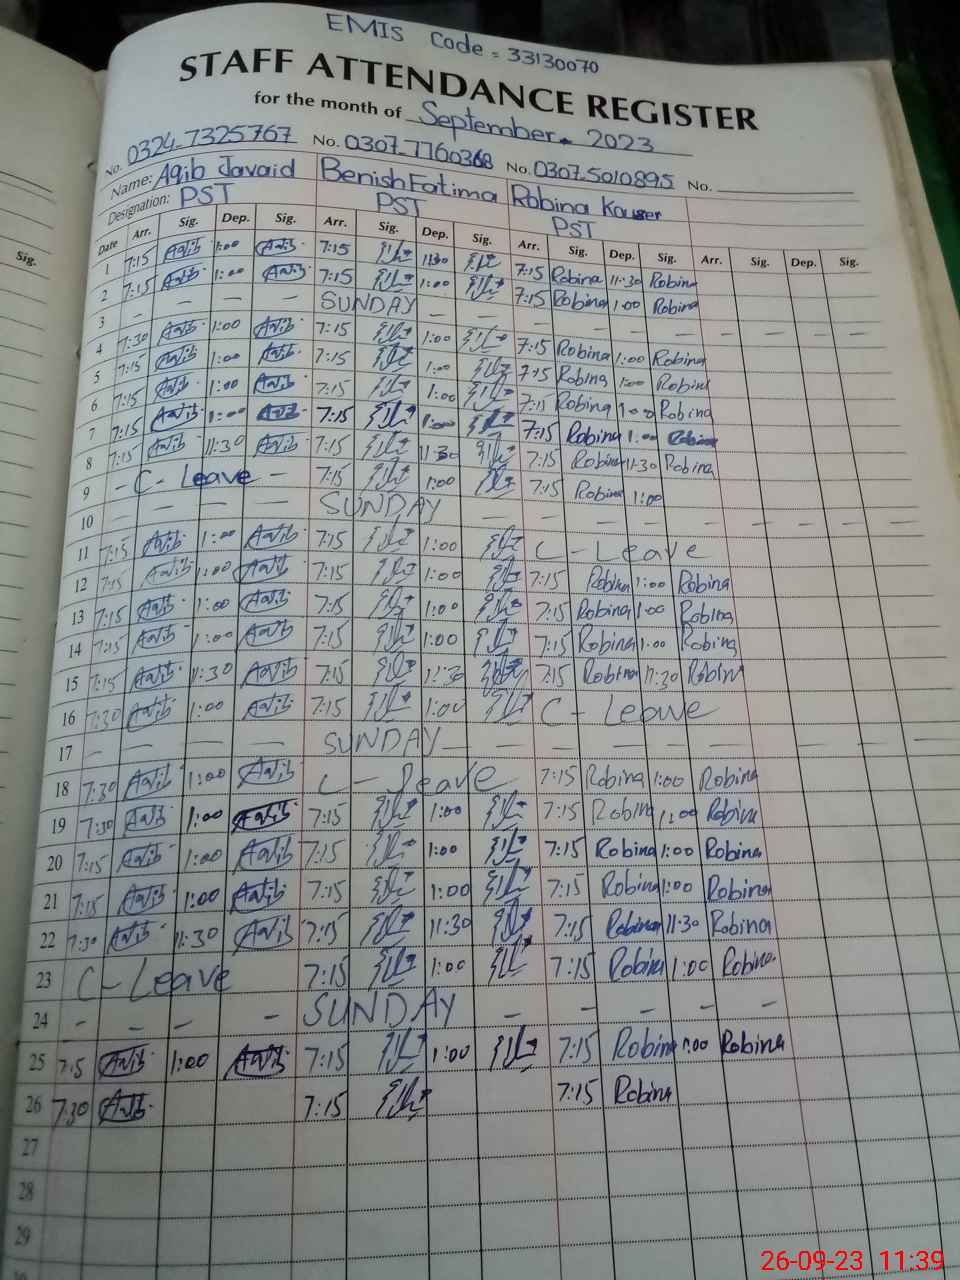 EMIS Code = 33130070
STAFF ATTENDANCE REGISTER
for the month of September. 2023
No. 0324-7325767 No. 0307-7760368 No. 0307-5010895 No.
Name: Aqib Javaid Benish Fatima Robina Kauser
Designation: PST PST PST
Date Arr. Sig. Dep. Sig. Arr. Sig. Dep. Sig. Arr. Sig. Dep. Sig. Arr. Sig. Dep. Sig.
1 7:15 Aqib 1:00 Aqib 7:15 11:30 7:15 Robina 11:30 Robina
2 7:15 Aqib 1:00 Aqib 7:15 1:00 7:15 Robina 1:00 Robina
3 - - - - SUNDAY - - - - - - - - - -
4 7:30 Aqib 1:00 Aqib 7:15 1:00 7:15 Robina 1:00 Robina
5 7:15 Aqib 1:00 Aqib 7:15 1:00 7:15 Robina 1:00 Robina
6 7:15 Aqib 1:00 Aqib 7:15 1:00 7:15 Robina 1:00 Robina
7 7:15 Aqib 1:00 Aqib 7:15 1:00 7:15 Robina 1:00 Robina
8 7:15 Aqib 11:30 Aqib 7:15 11:30 7:15 Robina 11:30 Robina
9 - C - Leave - 7:15 1:00 7:15 Robina 1:00
10 - - - - SUNDAY - - - - - - - - - -
11 7:15 Aqib 1:00 Aqib 7:15 1:00 C - Leave
12 7:15 Aqib 1:00 Aqib 7:15 1:00 7:15 Robina 1:00 Robina
13 7:15 Aqib 1:00 Aqib 7:15 1:00 7:15 Robina 1:00 Robina
14 7:15 Aqib 1:00 Aqib 7:15 1:00 7:15 Robina 1:00 Robina
15 7:15 Aqib 11:30 Aqib 7:15 11:30 7:15 Robina 11:30 Robina
16 7:30 Aqib 1:00 Aqib 7:15 1:00 C - Leave
17 - - - - SUNDAY - - - - - - - - - -
18 7:30 Aqib 1:00 Aqib C - Leave 7:15 Robina 1:00 Robina
19 7:30 Aqib 1:00 Aqib 7:15 1:00 7:15 Robina 1:00 Robina
20 7:15 Aqib 1:00 Aqib 7:15 1:00 7:15 Robina 1:00 Robina
21 7:15 Aqib 1:00 Aqib 7:15 1:00 7:15 Robina 1:00 Robina
22 7:30 Aqib 11:30 Aqib 7:15 11:30 7:15 Robina 11:30 Robina
23 C - Leave 7:15 1:00 7:15 Robina 1:00 Robina
24 - - - - SUNDAY - - - - - -
25 7:15 Aqib 1:00 Aqib 7:15 1:00 7:15 Robina 1:00 Robina
26 7:30 Aqib 7:15 7:15 Robina
27
28
29
Sig.
26-09-23 11:39